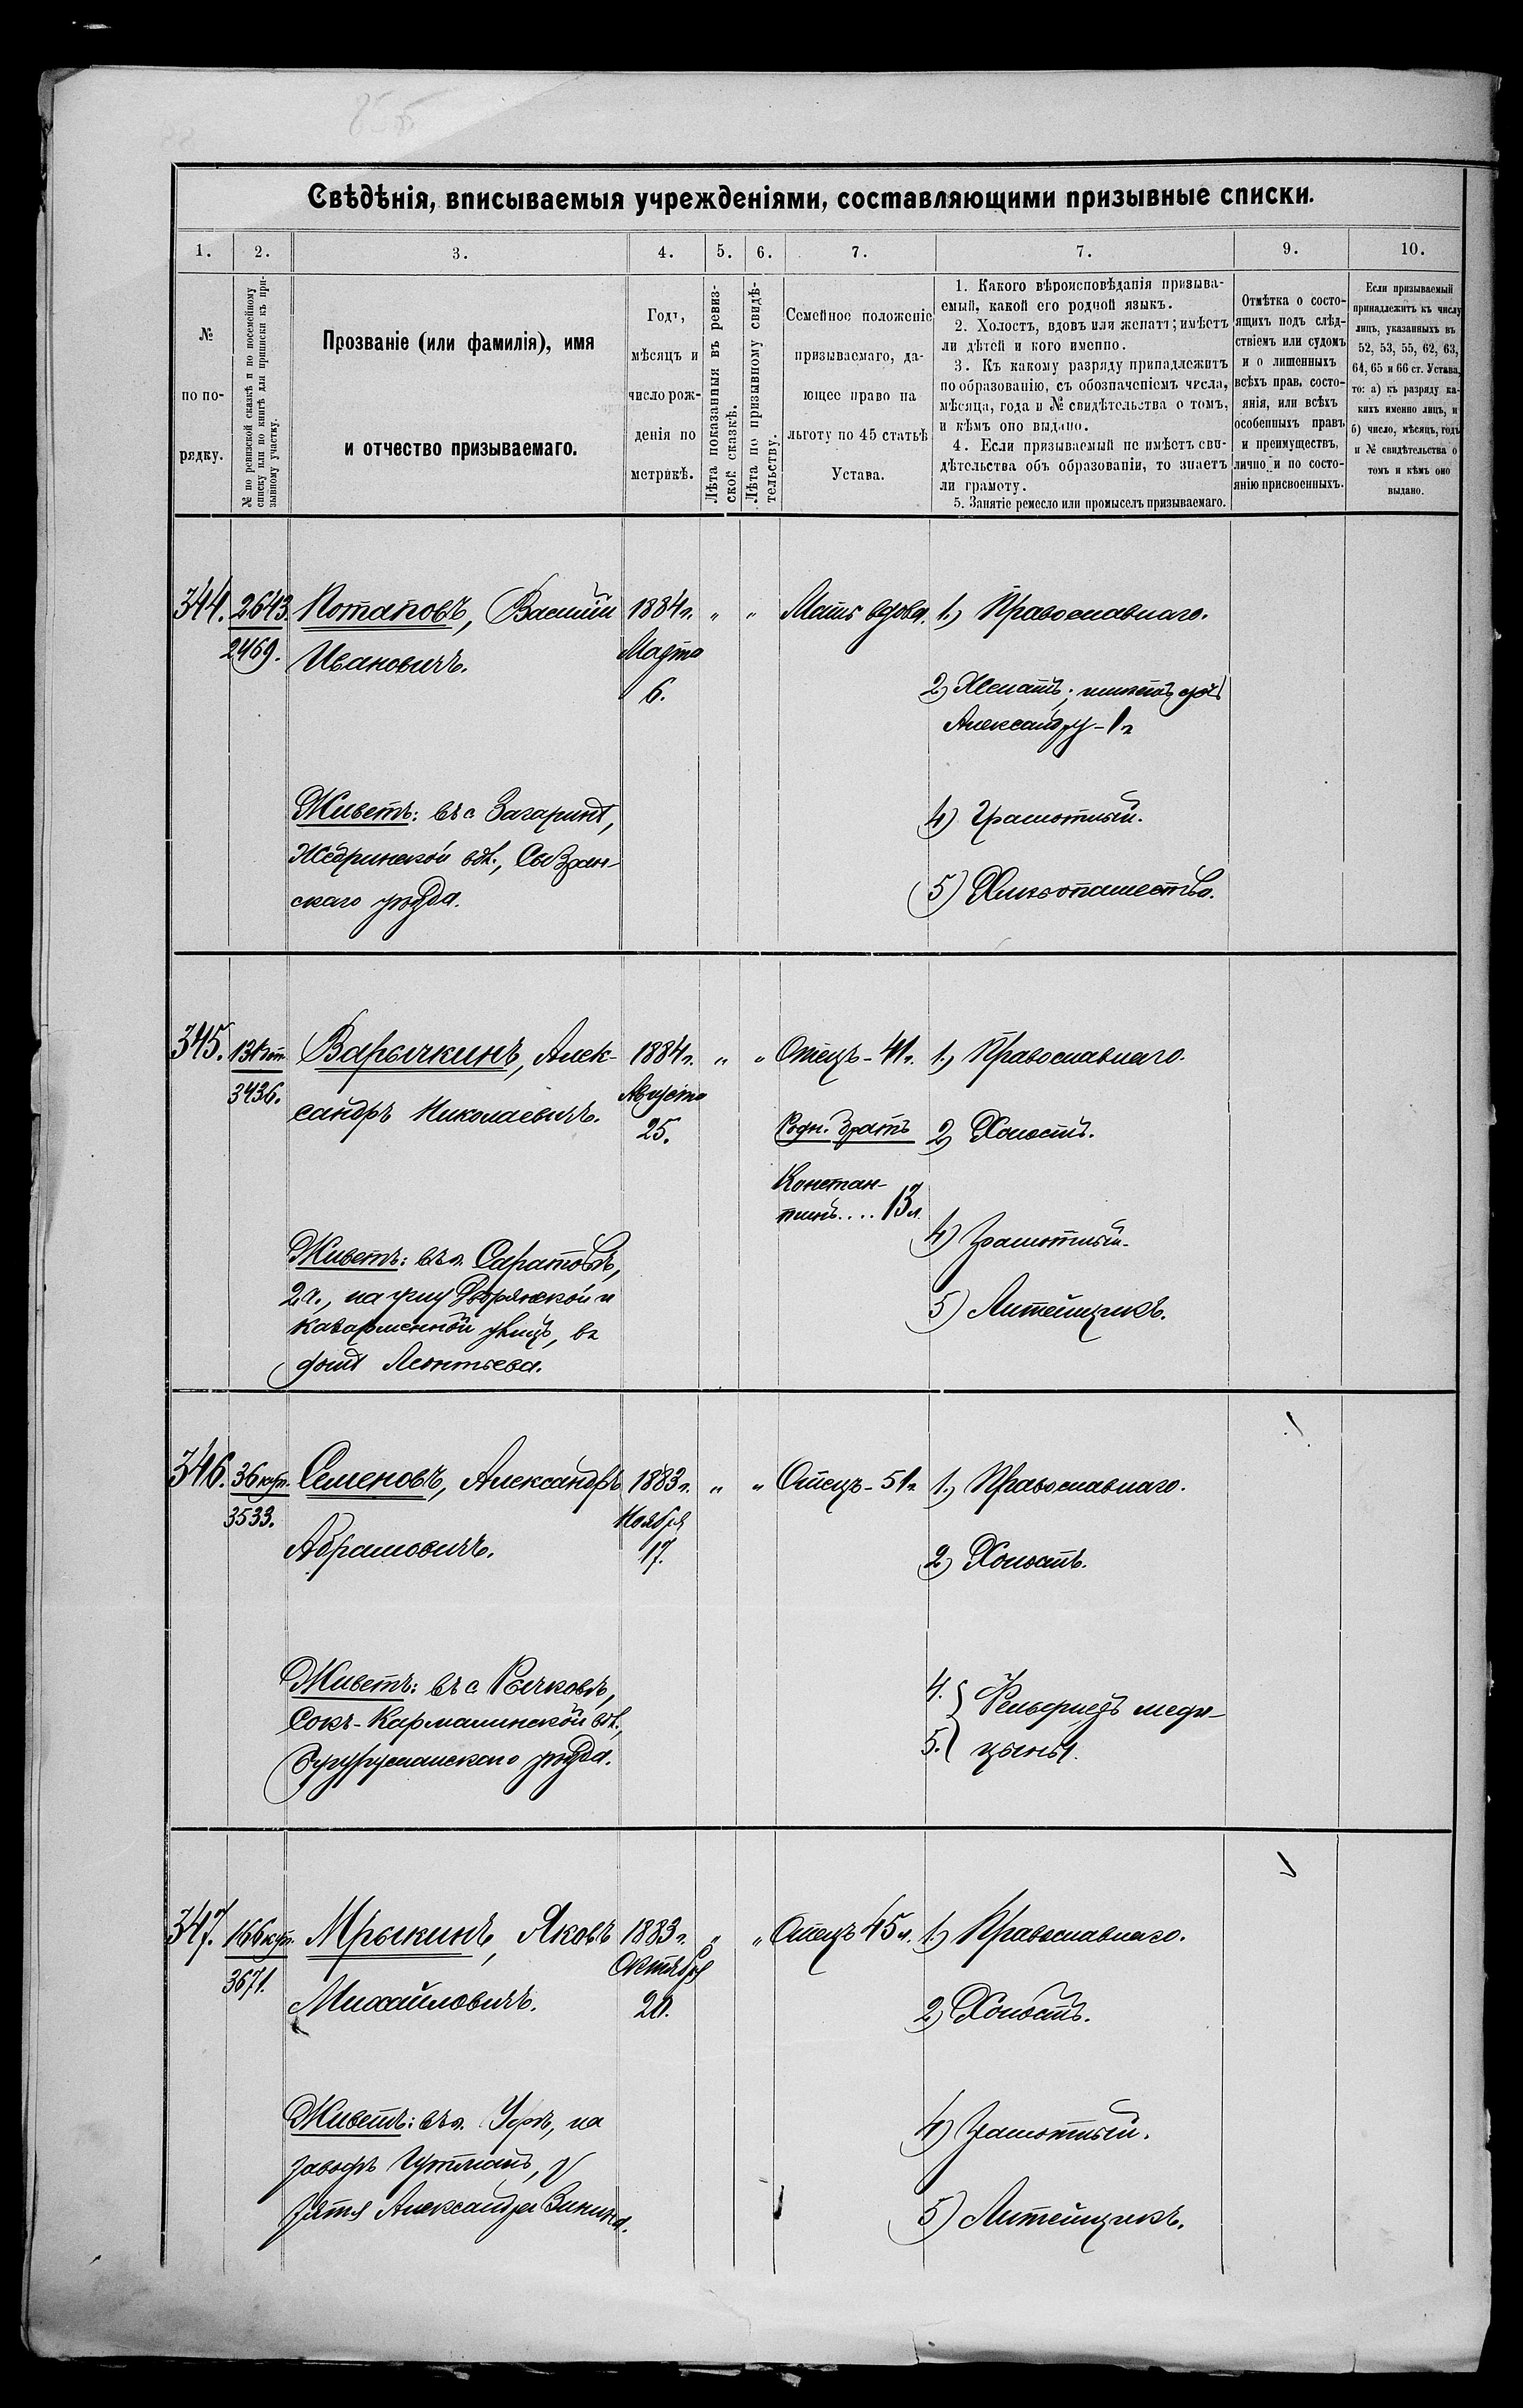 Свѣдѣнія, вписываемыя учрежденіями, составляющими призывные списки.
1. 2. 3. 4. 5. 6. 7. 7. 9. 10.
№
по по-
рядку.
№ по ревизской сказкѣ и по посемейному
списку или по книгѣ для приписки къ при-
зывному участку.
Прозваніе (или фамилія), имя
и отчество призываемаго.
Годъ,
мѣсяцъ и
число рож-
денія по
метрикѣ.
Лѣта показанныя въ ревиз-
ской сказкѣ.
Лѣта по призывному свидѣ-
тельству.
Семейное положеніе
призываемаго, да-
ющее право на
льготу по 45 статьѣ
Устава.
1. Какого вѣроисповѣданія призыва-
емый, какой его родной языкъ.
2. Холостъ, вдовъ или женатъ; имѣетъ
ли дѣтей и кого именно.
3. Къ какому разряду принадлежитъ
по образованію, съ обозначеніемъ числа,
мѣсяца, года и № свидѣтельства о томъ,
и кѣмъ оно выдано.
4. Если призываемый не имѣетъ сви-
дѣтельства объ образованіи, то знаетъ
ли грамоту.
5. Занятіе ремесло или промыселъ призываемаго.
Отмѣтка о состо-
ящихъ подъ слѣд-
ствіемъ или судомъ
и о лишенныхъ
всѣхъ прав, состо-
янія, или всѣхъ
особенныхъ правъ
и преимуществъ,
лично и по состо-
янію присвоенныхъ.
Если призываемый
принадлежитъ къ числу
лицъ, указанныхъ въ
52, 53, 55, 62, 63,
64, 65 и 66 ст. Устава,
то: а) къ разряду ка-
кихъ именно лицъ, и
б) число, мѣсяцъ, годъ
и № свидѣтельства о
томъ и кѣмъ оно
выдано.
344. 2643. Потаповъ, Василій 1884 г. " " Мать вдова. 1.) Православнаго.
2469. Ивановичъ. Марта
6.
2) Женатъ; имѣетъ дочь
Александру - 1 г
Живетъ: въ с Загаринѣ,
Жедринской вол., Сызран-
скаго уѣзда.
4) Грамотный.
5) Хлѣбопашество.
345. 131 Варычкинъ, Алек- 1884 г. " " Отецъ - 41 г. 1.) Православнаго.
3436. сандръ Николаевичъ. Августа
25.
Родн. братъ 2) Холостъ.
Констан-
тинъ.... 13 л.
4) Грамотный.
Живетъ: въ г. Саратовѣ,
2 ч., на углу Дворянской и
Казарменной улицъ, въ
домѣ Леонтьева.
5) Литейщикъ.
346. 36 куп. Семеновъ, Александръ 1883 г. " " Отецъ - 51 г 1.) Православнаго.
3533. Абрамовичъ. Ноября
17.
2) Холостъ.
Живетъ: въ с Рычковѣ,
Сокъ-Кармалинской вол.,
Бугурусланскаго уѣзда.
4. Фельдшеръ меди-
5. цины.
347. 166 куп. Мрыкинъ, Яковъ 1883 г. " " Отецъ 45 л. 1.) Православнаго.
3671. Михайловичъ. Октября
20.
2) Холостъ.
Живетъ: въ г. Уфѣ, на
заводѣ Гутманъ, у
зятя Александра Зинина.
4) Грамотный.
5) Литейщикъ.